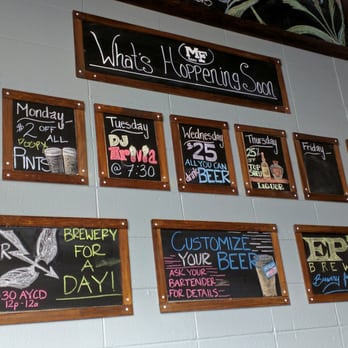 MF
What's Hoppening Soon
Monday
$2 OFF
ALL
PINTS
Tuesday
DJ
Trivia
@ 7:30
Wednesday
$25
ALL YOU CAN
BEER
Thursday
25%
TOP
SHELF
LIQUOR
Friday
BREWERY
FOR
A
DAY!
30 AYCD
12p-12a
CUSTOMIZE
YOUR
BEER
ASK YOUR
BARTENDER
FOR DETAILS
BREW